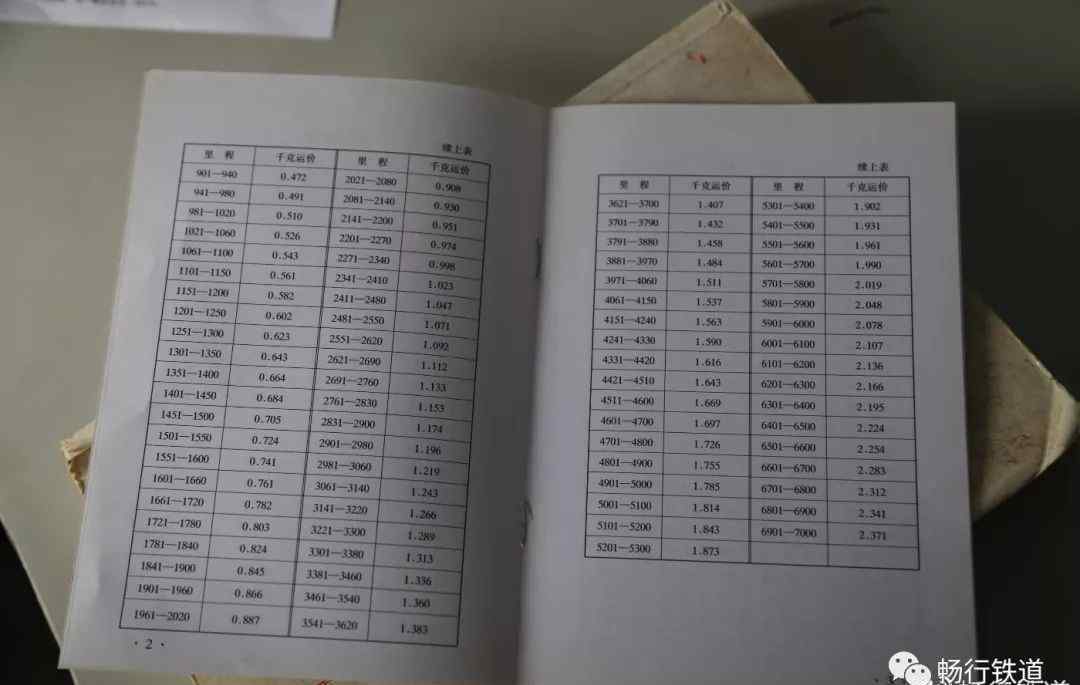 续上表
里 程 千克运价 里 程 千克运价
901—940 0.472 2021—2080 0.908
941—980 0.491 2081—2140 0.930
981—1020 0.510 2141—2200 0.951
1021—1060 0.526 2201—2270 0.974
1061—1100 0.543 2271—2340 0.998
1101—1150 0.561 2341—2410 1.023
1151—1200 0.582 2411—2480 1.047
1201—1250 0.602 2481—2550 1.071
1251—1300 0.623 2551—2620 1.092
1301—1350 0.643 2621—2690 1.112
1351—1400 0.664 2691—2760 1.133
1401—1450 0.684 2761—2830 1.153
1451—1500 0.705 2831—2900 1.174
1501—1550 0.724 2901—2980 1.196
1551—1600 0.741 2981—3060 1.219
1601—1660 0.761 3061—3140 1.243
1661—1720 0.782 3141—3220 1.266
1721—1780 0.803 3221—3300 1.289
1781—1840 0.824 3301—3380 1.313
1841—1900 0.845 3381—3460 1.336
1901—1960 0.866 3461—3540 1.360
1961—2020 0.887 3541—3620 1.383
· 2 ·
续上表
里 程 千克运价 里 程 千克运价
3621—3700 1.407 5301—5400 1.902
3701—3790 1.432 5401—5500 1.931
3791—3880 1.458 5501—5600 1.961
3881—3970 1.484 5601—5700 1.990
3971—4060 1.511 5701—5800 2.019
4061—4150 1.537 5801—5900 2.048
4151—4240 1.563 5901—6000 2.078
4241—4330 1.590 6001—6100 2.107
4331—4420 1.616 6101—6200 2.136
4421—4510 1.643 6201—6300 2.166
4511—4600 1.669 6301—6400 2.195
4601—4700 1.697 6401—6500 2.224
4701—4800 1.726 6501—6600 2.254
4801—4900 1.755 6601—6700 2.283
4901—5000 1.785 6701—6800 2.312
5001—5100 1.814 6801—6900 2.341
5101—5200 1.843 6901—7000 2.371
5201—5300 1.873
畅行铁道